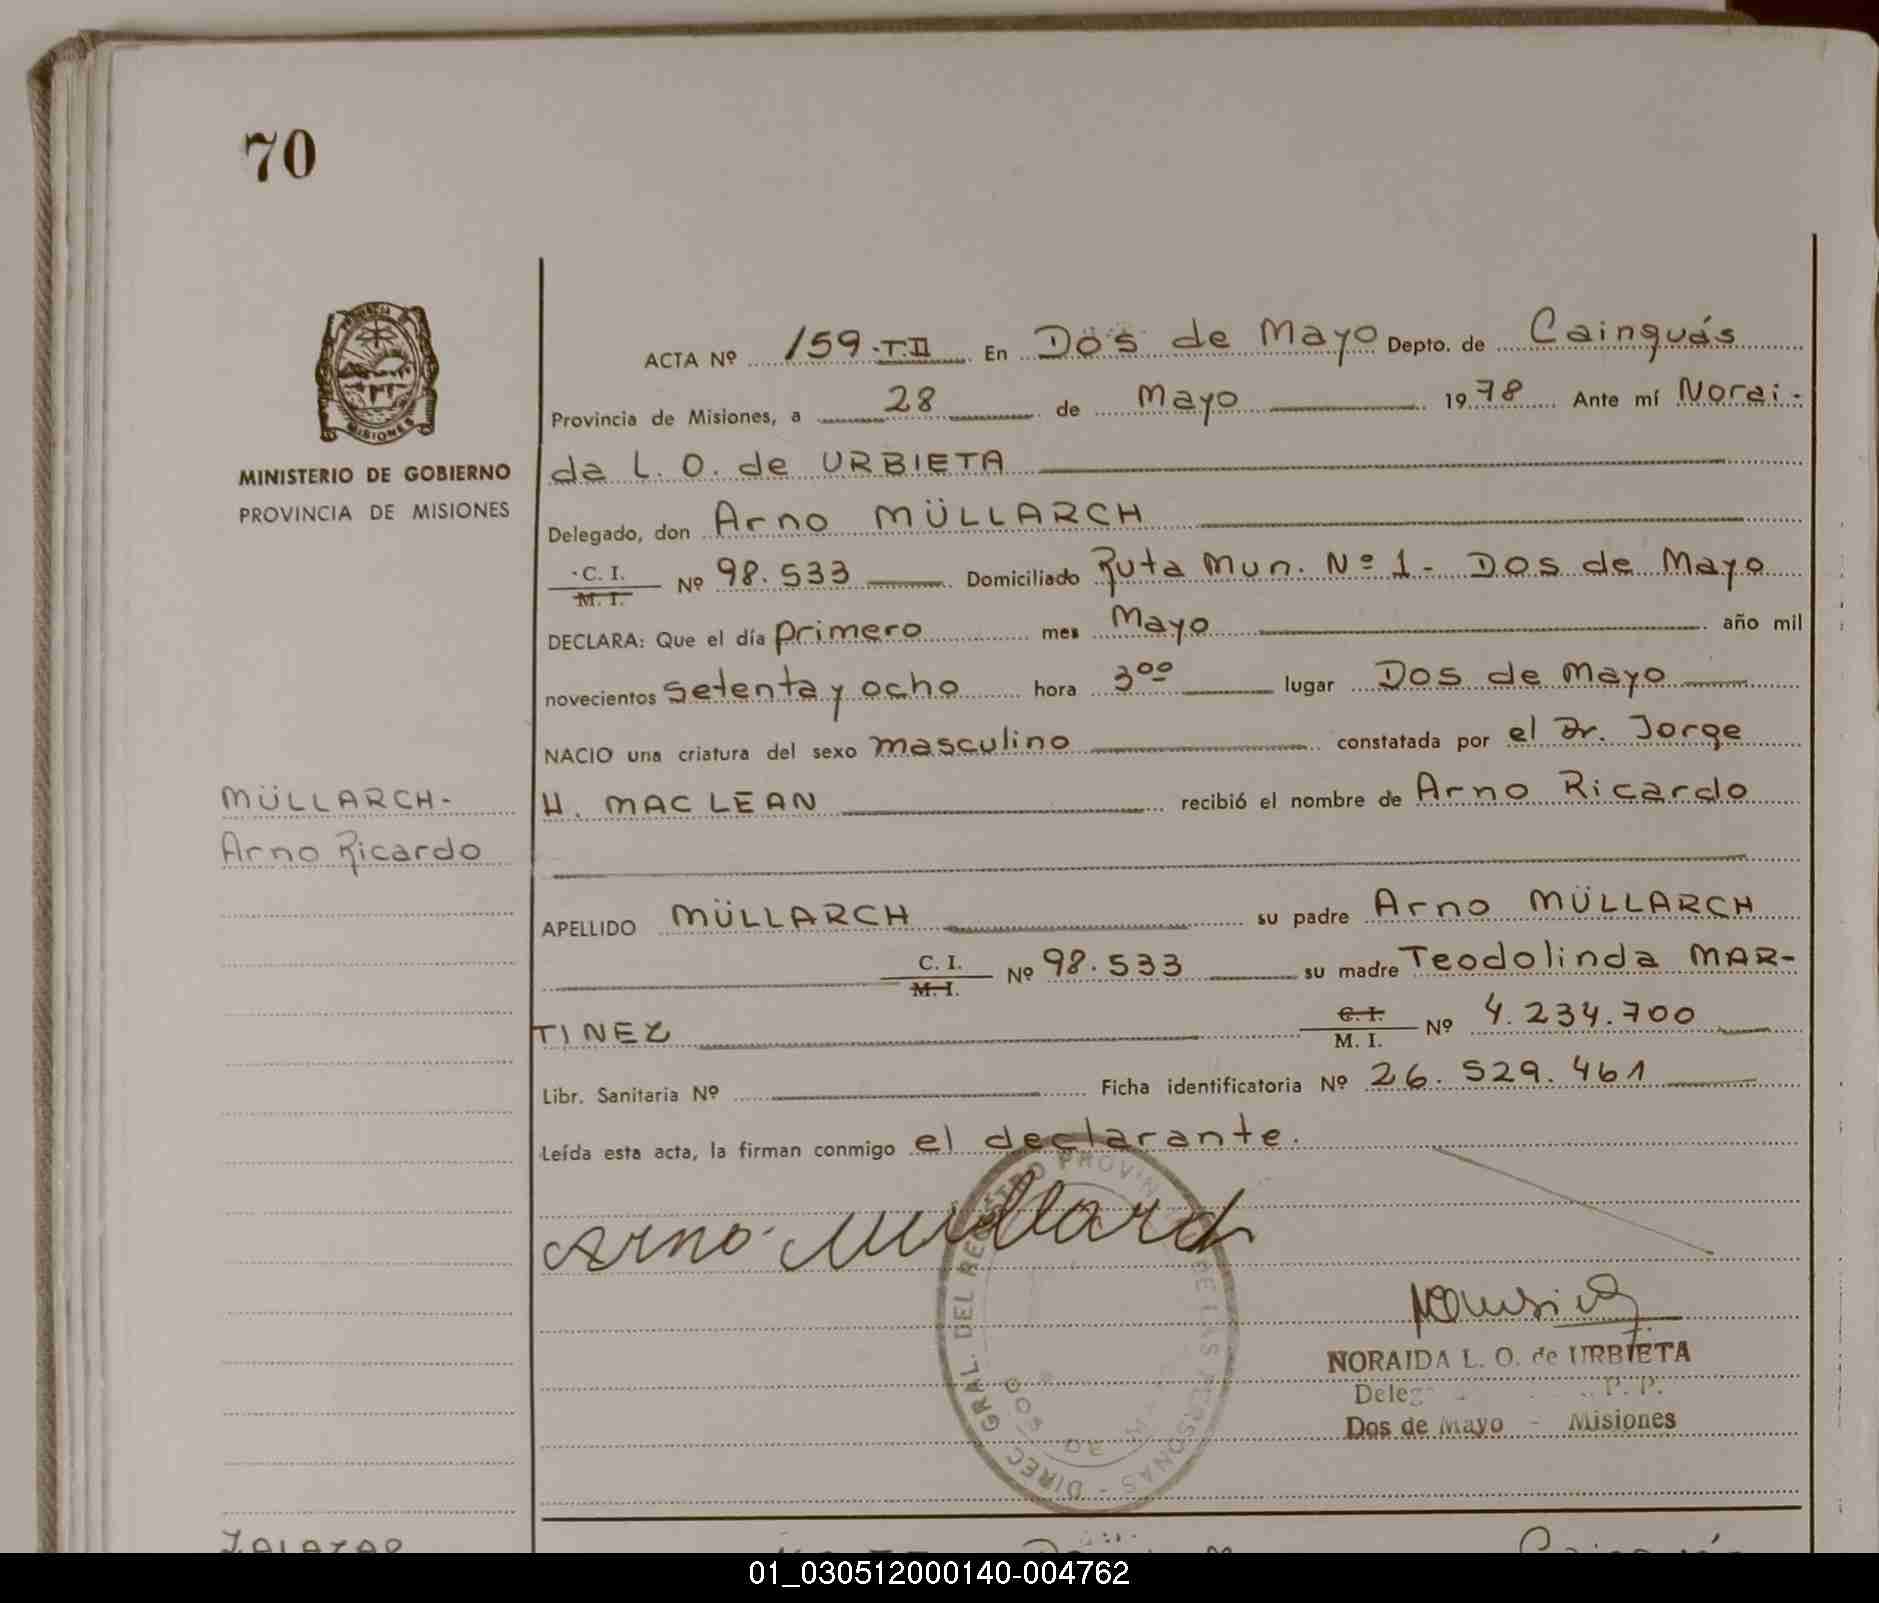 70
PROVINCIA
MISIONES
MINISTERIO DE GOBIERNO
PROVINCIA DE MISIONES
ACTA Nº 159-T.II En Dos de Mayo Depto. de Cainguás
Provincia de Misiones, a 28 de Mayo 1978 Ante mí Norai-
da L. O. de URBIETA
Delegado, don Arno MÜLLARCH
C. I.
M. I. Nº 98.533 Domiciliado Ruta Mun. Nº 1 - Dos de Mayo
DECLARA: Que el día primero mes Mayo año mil
novecientos setenta y ocho hora 3⁰⁰ lugar Dos de Mayo
NACIO una criatura del sexo masculino constatada por el Dr. Jorge
H. MAC LEAN recibió el nombre de Arno Ricardo
MÜLLARCH-
Arno Ricardo
APELLIDO MÜLLARCH su padre Arno MÜLLARCH
C. I.
M. I. Nº 98.533 su madre Teodolinda MAR-
TINEZ C. I.
M. I. Nº 4.234.700
Libr. Sanitaria Nº Ficha identificatoria Nº 26.529.461
Leída esta acta, la firman conmigo el declarante.
Arno Mullarch
DIREC GRAL. DEL REGISTRO PROVINCIAL DE LAS PERSONAS -
NORAIDA L. O. de URBIETA
Dos de Mayo - Misiones
01_030512000140-004762